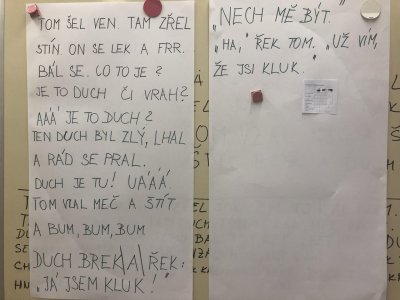 TOM ŠEL VEN. TAM ZŘEL
STÍN ON SE LEK A FRR.
BÁL SE. CO TO JE?
JE TO DUCH ČI VRAH?
AÁÁ JE TO DUCH?
TEN DUCH BYL ZLÝ, LHAL
A RÁD SE PRAL.
DUCH JE TU! UÁÁÁ.
TOM VZAL MEČ A ŠTÍT
A BUM, BUM, BUM
DUCH BREK A ŘEK:
„JÁ JSEM KLUK!"
„NECH MĚ BÝT."
„HA," ŘEK TOM. „UŽ VÍM,
ŽE JSI KLUK."